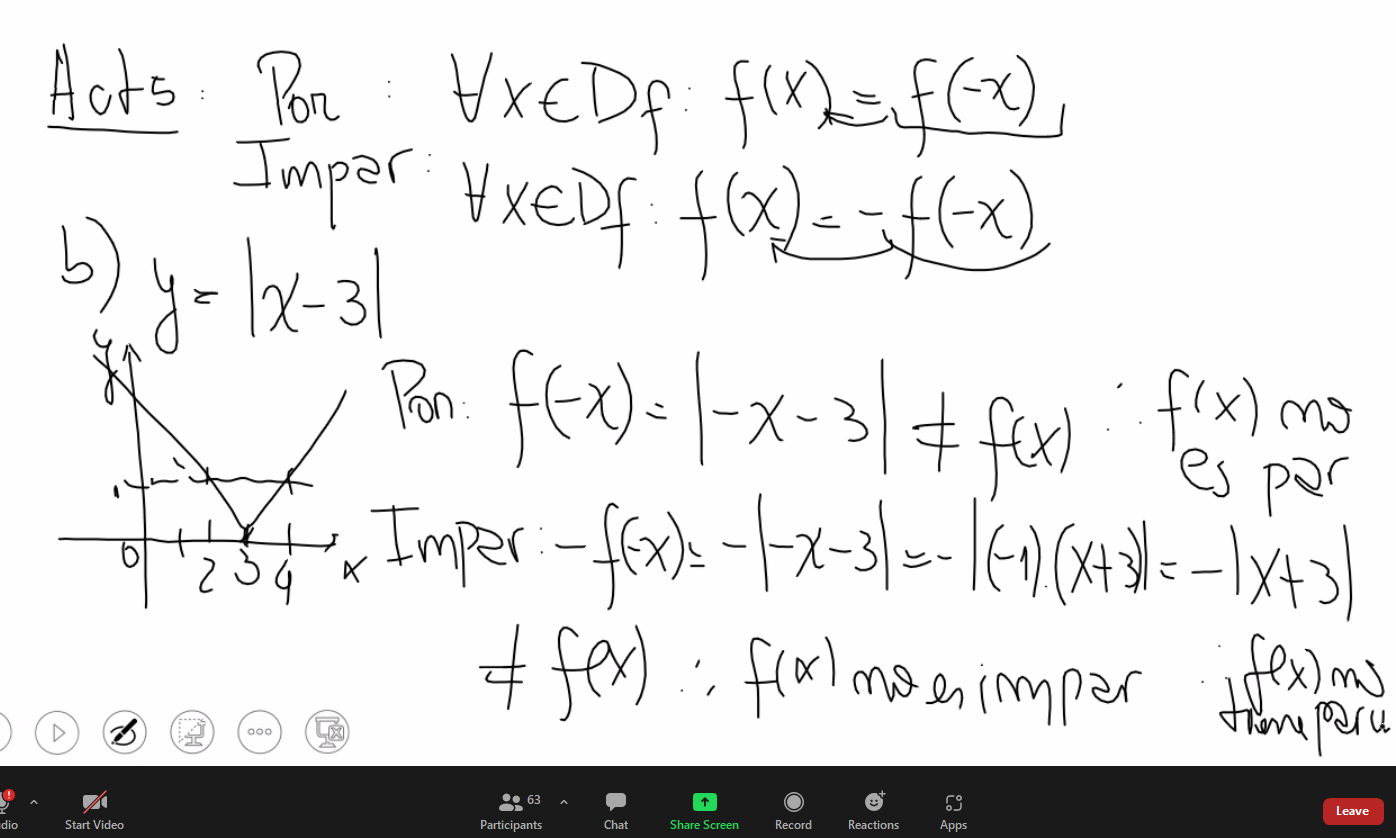 Act 5 : Par : ∀x∈Df: f(x) = f(-x)
Impar: ∀x∈Df: f(x) = -f(-x)
b) y = |x-3|
y
Par: f(-x) = |-x-3| ≠ f(x) ∴ f(x) no
es par
1
0 2 3 4 x
Impar: -f(-x) = -|-x-3| = -|(-1).(x+3)| = -|x+3|
≠ f(x) ∴ f(x) no es impar ∴ f(x) no
dio
Start Video
Participants 63
Chat
Share Screen
Record
Reactions
Apps
Leave